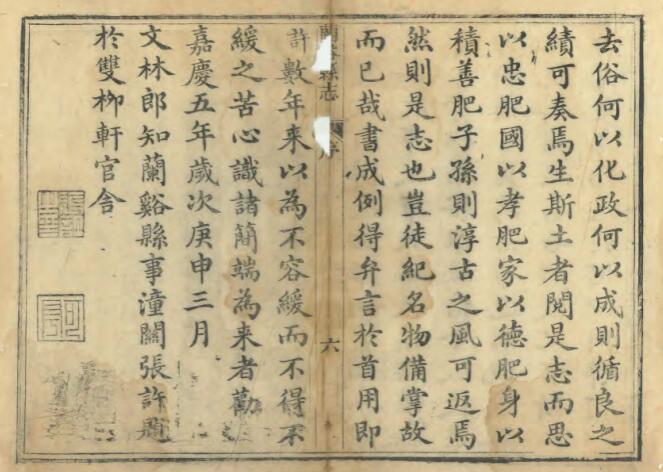 去俗何以化政何以成則循良之
績可奏焉生斯土者閱是志而思
以忠肥國以孝肥家以德肥身以
積善肥子孫則淳古之風可返焉
然則是志也豈徒紀名物備掌故
而已哉書成例得弁言於首用即
縣志 序 六
許數年来以為不容緩而不得不
緩之苦心識諸簡端為来者勸
嘉慶五年歲次庚申三月
文林郎知蘭谿縣事潼關張許
於雙柳軒官舍